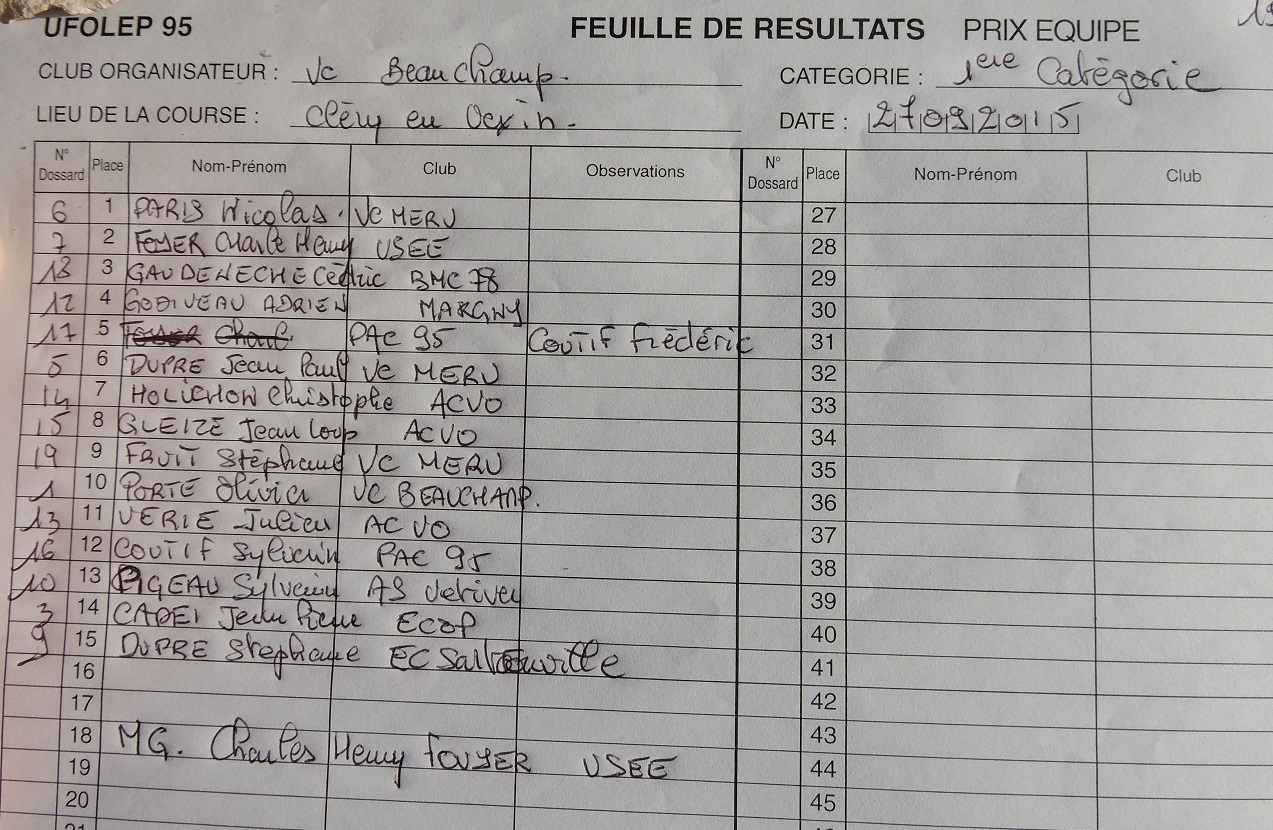 UFOLEP 95 FEUILLE DE RESULTATS PRIX EQUIPE
CLUB ORGANISATEUR : Vc Beauchamp. CATEGORIE : 1ere Catégorie
LIEU DE LA COURSE : Cléry en Vexin. DATE : 27092015
N° Dossard Place Nom-Prénom Club Observations N° Dossard Place Nom-Prénom Club
6 1 PARIS Nicolas. VC MERU 27
7 2 FOYER Charle Henry USEE 28
18 3 GAUDENECHE Cédric BMC 78 29
12 4 GODIVEAU ADRIEN MARGNY 30
17 5 PAC 95 COUTIF Frédéric 31
5 6 DUPRE Jean Paul VC MERU 32
14 7 HOLICHON Christophe ACVO 33
15 8 GLEIZE Jean Loup ACVO 34
19 9 FRUIT Stéphane VC MERU 35
1 10 PORTE Olivier VC BEAUCHAMP. 36
13 11 VERIE Julien ACVO 37
16 12 COUTIF Sylvain PAC 95 38
10 13 PIGEAU Sylvain AS 39
3 14 CADEI Jean Pierre ECOP 40
9 15 DUPRE Stephane EC Sartrouville 41
16 42
17 43
18 MG. Charles Henry FOUYER USEE 44
19 45
20
21